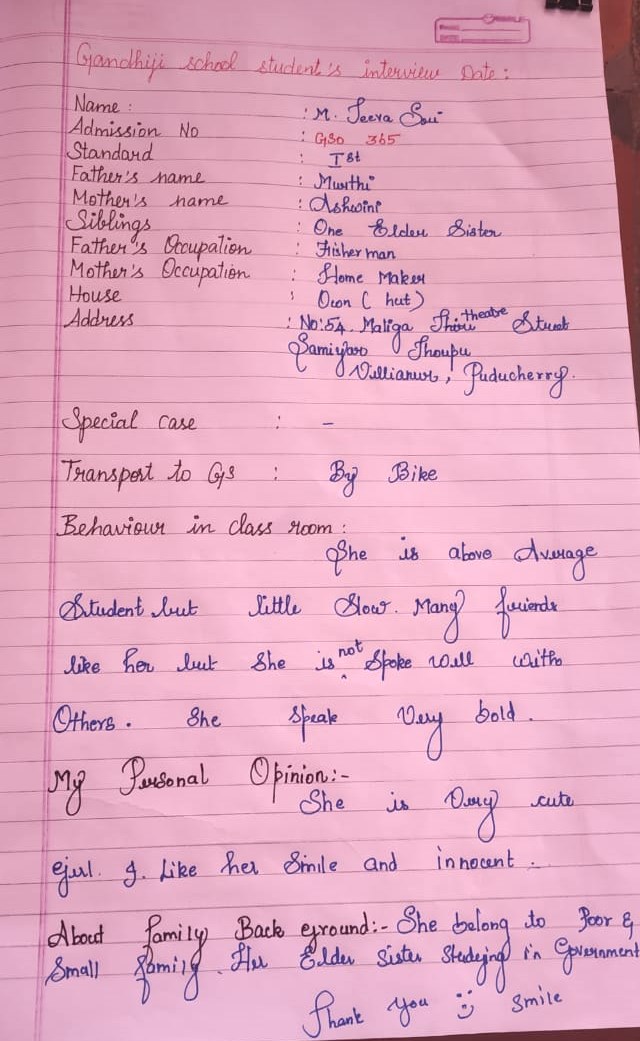 Gandhiji school student's interview Date:
Name : : M. Jeeva Sri
Admission No : GSO 365
Standard : Ist
Father's name : Murthi
Mother's name : Ashwini
Siblings : One Elder Sister
Father's Occupation : Fisher man
Mother's Occupation : Home Maker
House : Own (hut)
Address : No:54. Maliga theatre Street
Thoupu
Villianur, Puducherry.
Special case : -
Transport to GS : By Bike
Behaviour in class room :
She is above Average
Student but little Slow. Many friends
like her but She is not Spoke well with
Others. She speak Very bold.
My Personal Opinion:-
She is Very cute
girl. I. Like her Smile and innocent.
About family Back ground:- She belong to Poor &
Small family. Her Elder Sister Studying in Government
Thank you smile